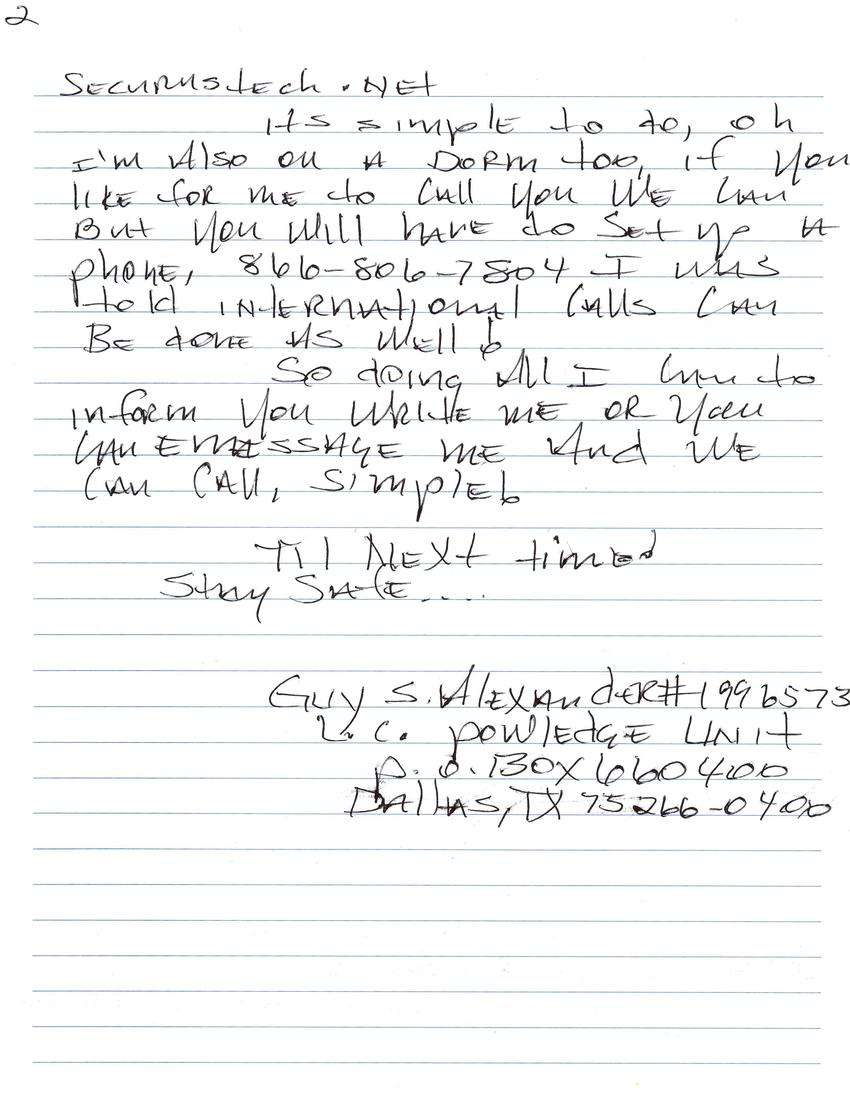 2
SECURUStech.NEt
Its simplE to do, oh
I'm Also on A DoRm too, if you
likE for mE to CAll you WE CAn
But you Will hAvE to SEt up A
phonE, 866-806-7804 I wAs
told INtERNAtionAl CAlls CAn
BE donE As WEll!
So doing All I CAn to
inform you WRitE mE OR you
CAn EmESSAgE mE And WE
CAn CAll, SimplE!
Til NExt timE!
StAy SAfE....
Guy S. AlExAndER#1996573
L.C. powlEdgE UNit
P.O. BOX 660400
DAllAS, TX 75266-0400